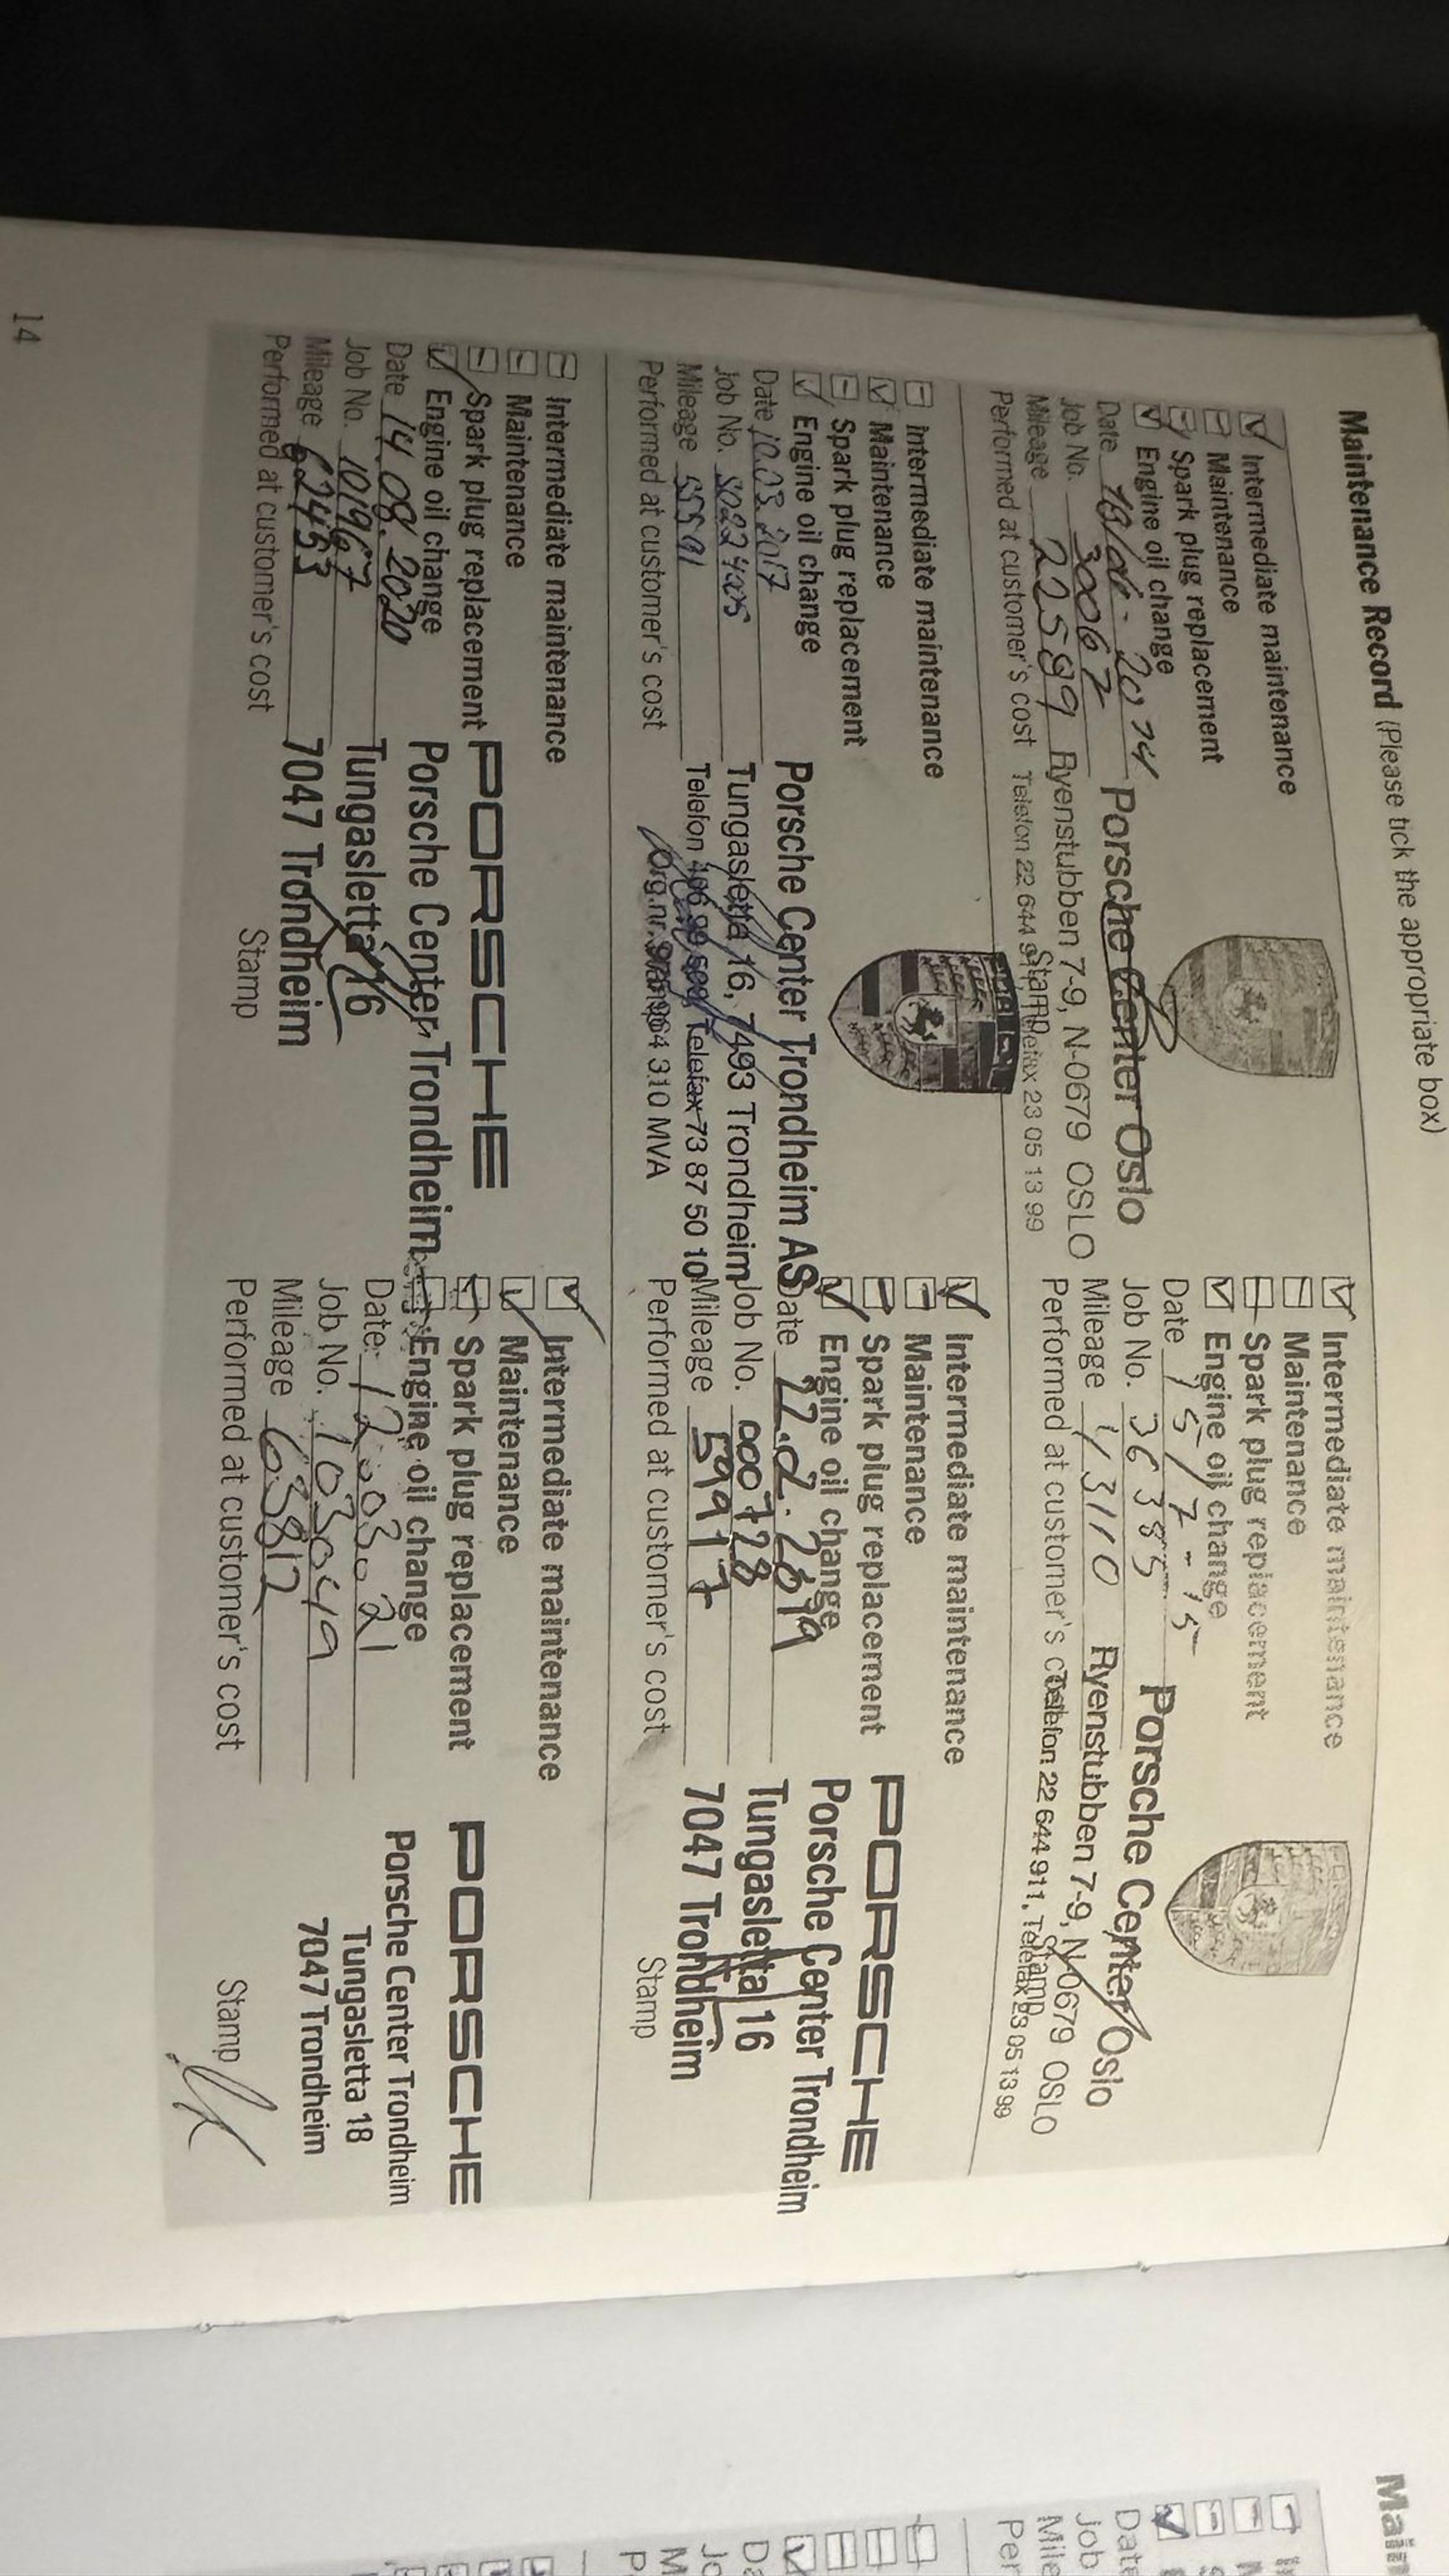 Maintenance Record (Please tick the appropriate box)
Intermediate maintenance
Maintenance
Spark plug replacement
Engine oil change
Date 2014
Job No. 30067
Mileage 22599
Performed at customer's cost
Porsche Center Oslo
Ryenstubben 7-9, N-0679 OSLO
Telefon 22 644 911, Telefax 23 05 13 99
Stamp
Intermediate maintenance
Maintenance
Spark plug replacement
Engine oil change
Date 15/7-15
Job No. 36385
Mileage
Performed at customer's cost
Porsche Center Oslo
Ryenstubben 7-9, N-0679 OSLO
Telefon 22 644 911, Telefax 23 05 13 99
Stamp
Intermediate maintenance
Maintenance
Spark plug replacement
Engine oil change
Date 10.03.2017
Job No. 50224005
Mileage 55591
Performed at customer's cost
Porsche Center Trondheim AS
Tungasletta 16, 7493 Trondheim
Telefon Telefax 73 87 50 10
Org.nr. 310 MVA
Stamp
Intermediate maintenance
Maintenance
Spark plug replacement
Engine oil change
Date 22.2.2019
Job No. 000728
Mileage 59917
Performed at customer's cost
PORSCHE
Porsche Center Trondheim
Tungasletta 16
7047 Trondheim
Stamp
Intermediate maintenance
Maintenance
Spark plug replacement
Engine oil change
Date 14.08.2020
Job No. 101967
Mileage 62453
Performed at customer's cost
PORSCHE
Porsche Center Trondheim
Tungasletta 16
7047 Trondheim
Stamp
Intermediate maintenance
Maintenance
Spark plug replacement
Engine oil change
Date 12.03.21
Job No. 103049
Mileage 63812
Performed at customer's cost
PORSCHE
Porsche Center Trondheim
Tungasletta 18
7047 Trondheim
Stamp
14
Date
Job